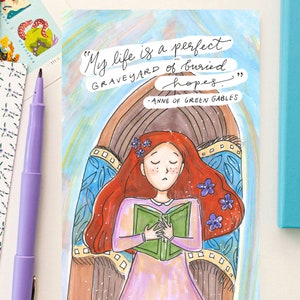 "My life is a perfect
GRAVEYARD of buried
hopes."
-ANNE OF GREEN GABLES